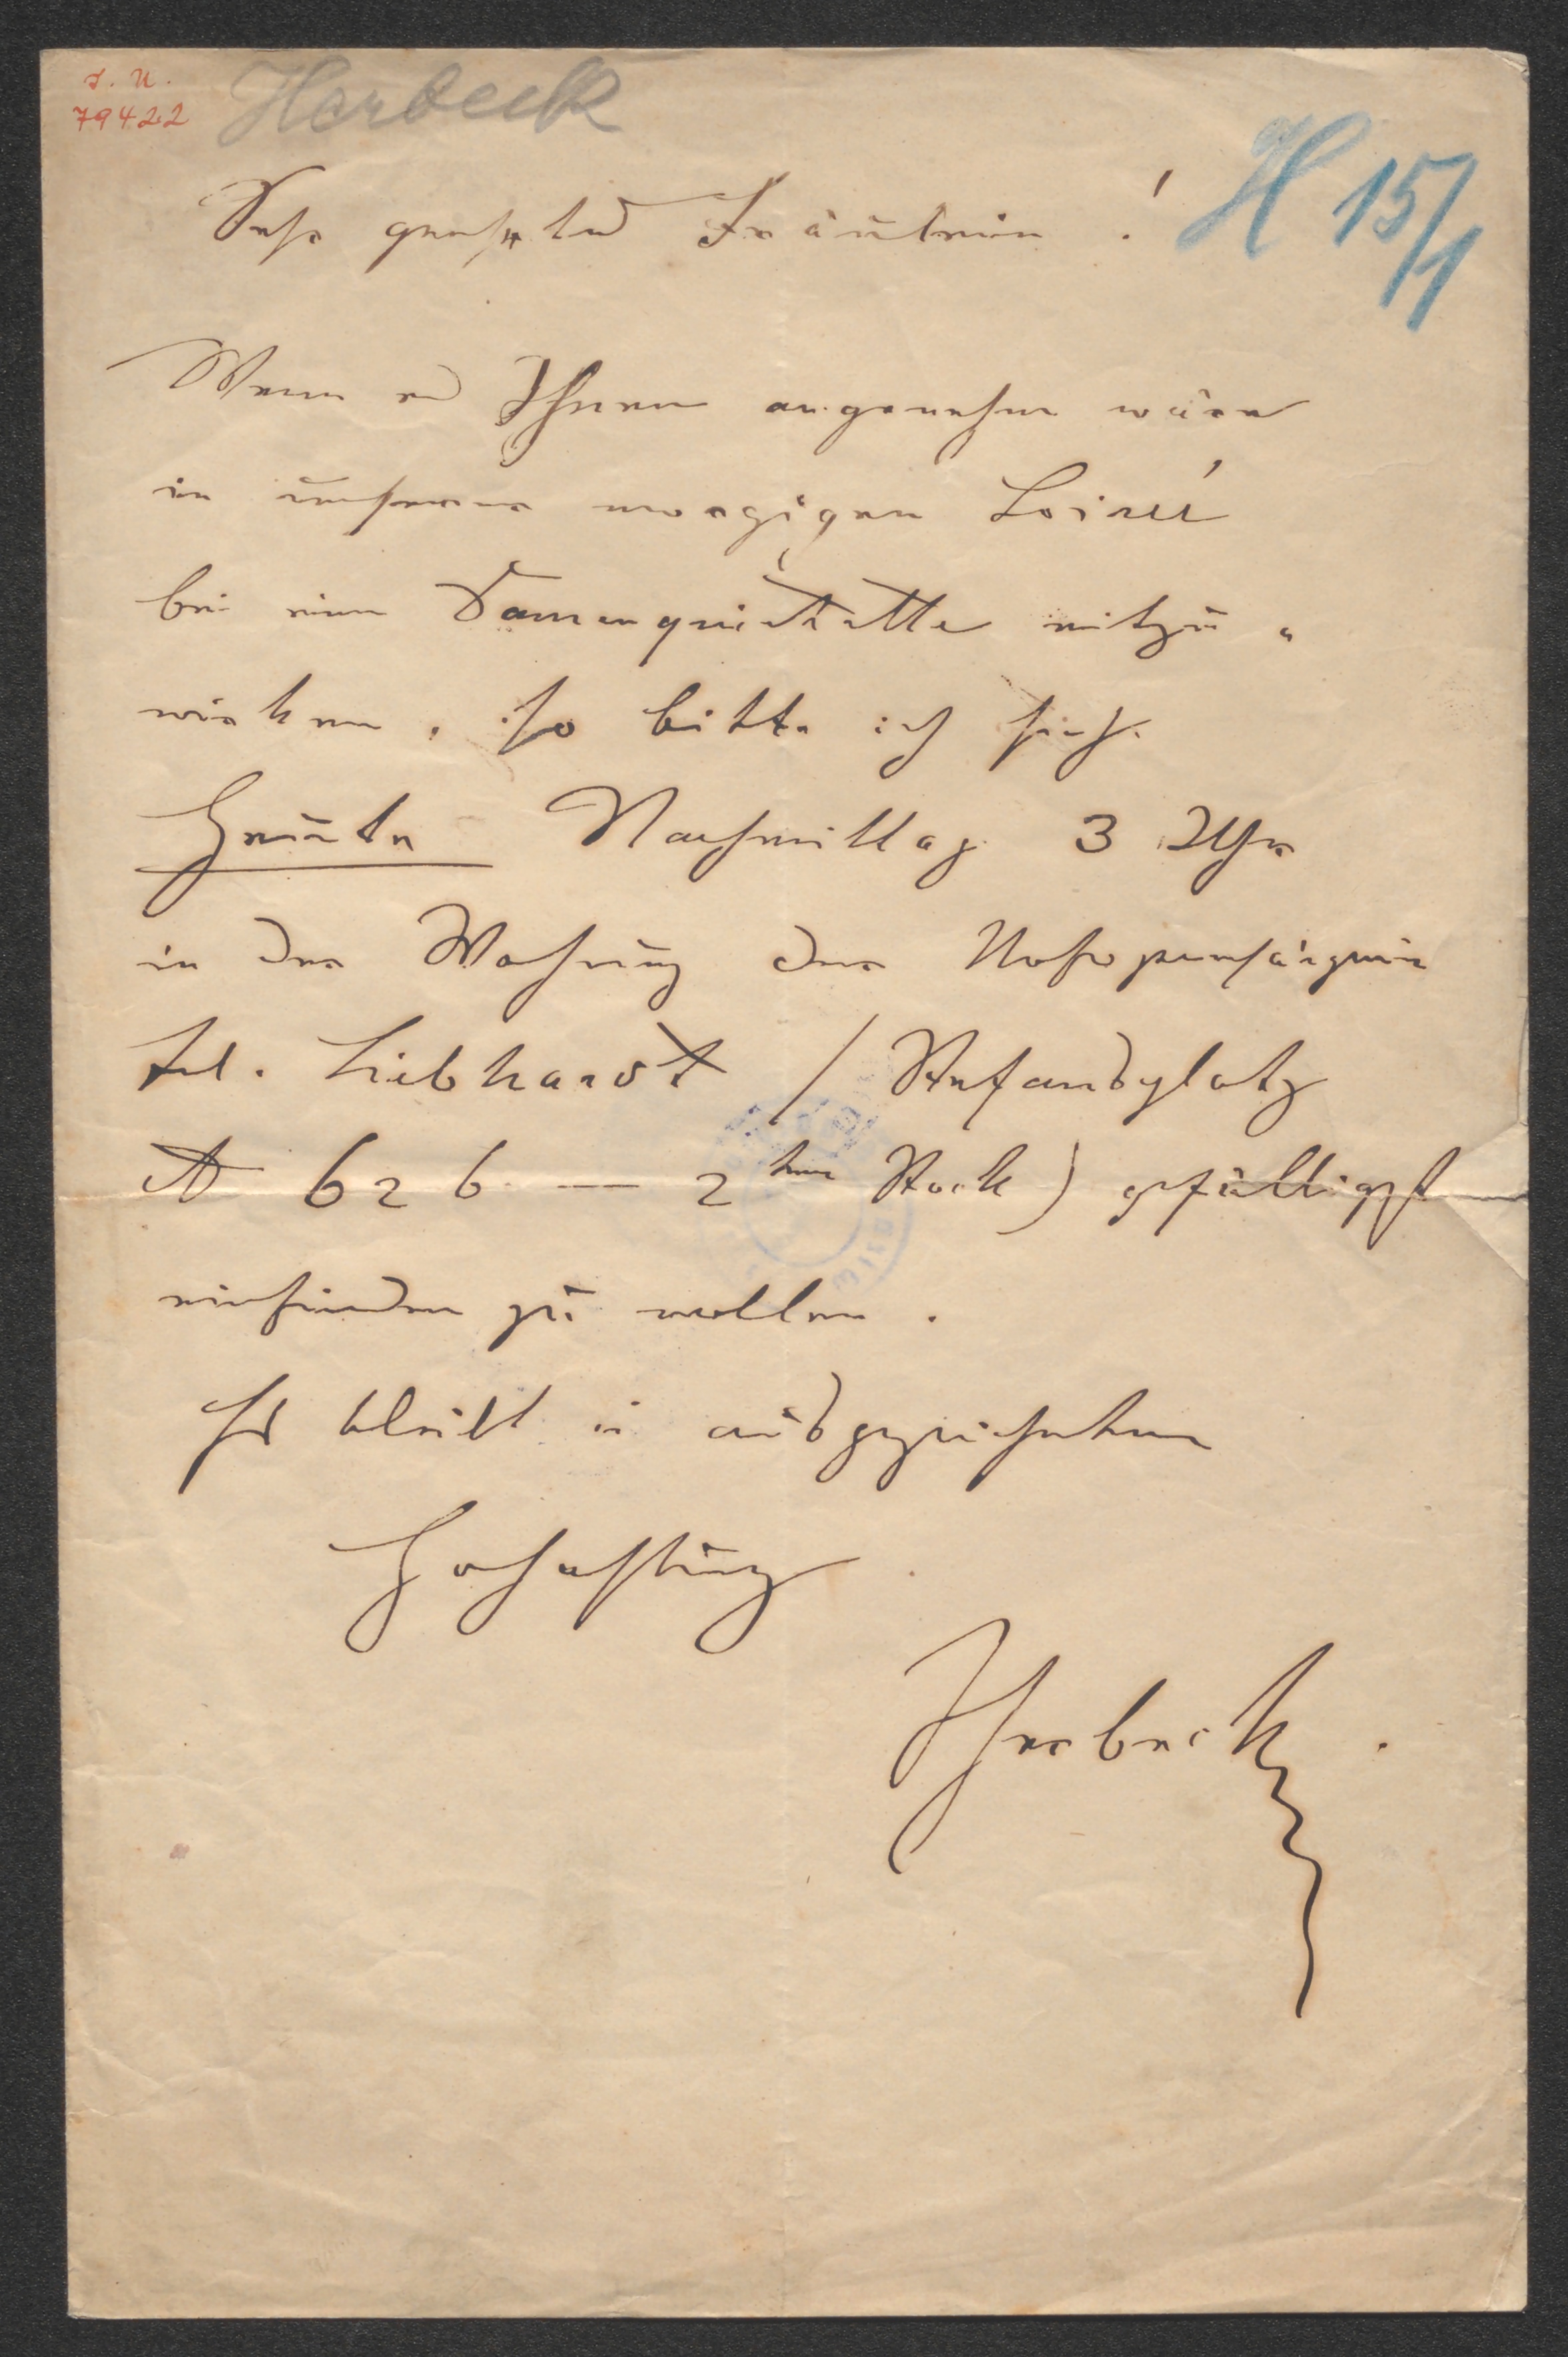 I. N.
79422
Herbeck
H 15/1
Sehr geehrtes Fräulein!
Wenn es Ihnen angenehm wäre
in unserer morgigen Soireé
bei einem Damenquartette mitzu-
wirken, so bitte ich sich
Heute Nachmittag 3 Uhr
in der Wohnung der Hofopernsängerin
Frl. Liebhardt / Stefansplatz
626 — 2ten Stock) gefälligst
einfinden zu wollen.
Es bleibt in ausgezeichneter
Hochachtung
Herbeck.